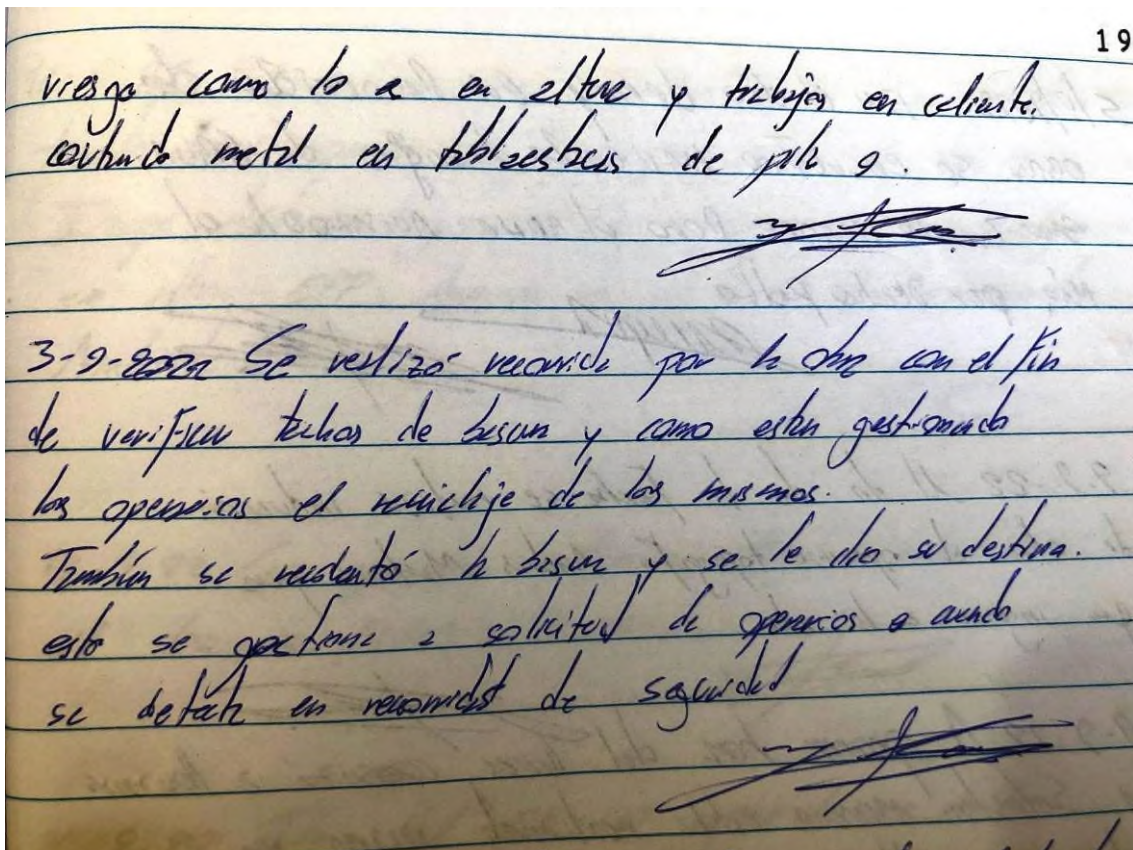 19
riesgo como lo e en altura y trabajos en caliente.
cortando metal en tablaestacas de pila 9.
3-9-2022 Se realizó recorrido por la obra con el fin
de verificar tachos de basura y como estan gestionando
los operarios el reciclaje de los mismos.
También se recolectó la basura y se le dio su destino.
esto se gestiona a solicitud de operarios o cuando
se detecta en recorridos de seguridad